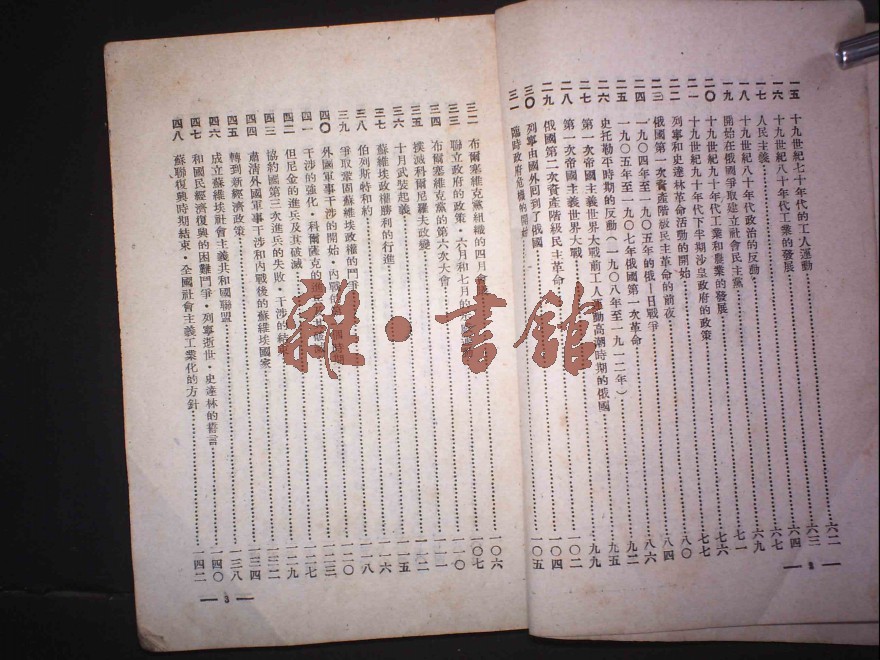 一五 十九世紀七十年代的工人運動 六二
一六 十九世紀八十年代工業的發展 六三
一七 人民主義 六四
一八 十九世紀八十年代政治的反動 六九
一九 開始在俄國爭取建立社會民主黨 七一
二〇 十九世紀九十年代工業和農業的發展 七六
二一 十九世紀九十年代下半期沙皇政府的政策 七七
二二 列寧和史達林革命活動的開始 八〇
二三 俄國第一次資產階級民主革命的前夜 八四
二四 一九〇四年至一九〇五年的俄—日戰爭 八六
二五 一九〇五年至一九〇七年俄國第一次革命 九二
二六 史托勒平時期的反動（一九〇八年至一九一二年） 九五
二七 第一次帝國主義世界大戰前工人運動高潮時期的俄國 九九
二八 第一次帝國主義世界大戰 一〇二
二九 俄國第二次資產階級民主革命 一〇四
三〇 列寧由國外回到了俄國 一〇五
三一 臨時政府危機的開始
三二 布爾塞維克黨組織的四月會 一〇六
三三 聯立政府的政策・六月和七月的 一〇七
三四 布爾塞維克黨的第六次大會 一一〇
三五 撲滅科爾尼羅夫政變 一一一
三六 十月武裝起義 一一二
三七 蘇維埃政權勝利的行進 一一五
三八 伯列斯特和約 一一六
三九 爭取鞏固蘇維埃政權的鬥爭 一一八
四〇 外國軍事干涉的開始・內戰 一二〇
四一 干涉的強化・科爾薩克的進 一二三
四二 但尼金的進兵及其破滅 一二七
四三 協約國第三次進兵的失敗・干涉的結 一二九
四四 肅清外國軍事干涉和內戰後的蘇維埃國家 一三二
四五 轉到新經濟政策 一三四
四六 成立蘇維埃社會主義共和國聯盟 一三八
四七 和國民經濟復興的困難鬥爭・列寧逝世・史達林的誓言 一四〇
四八 蘇聯復興時期結束・全國社會主義工業化的方針 一四二
— 3 —
雜・書館